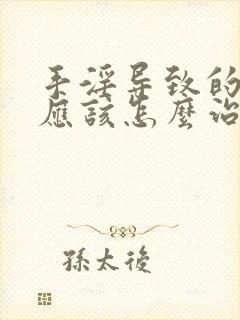 手淫导致的
應該怎麼治
孫太後